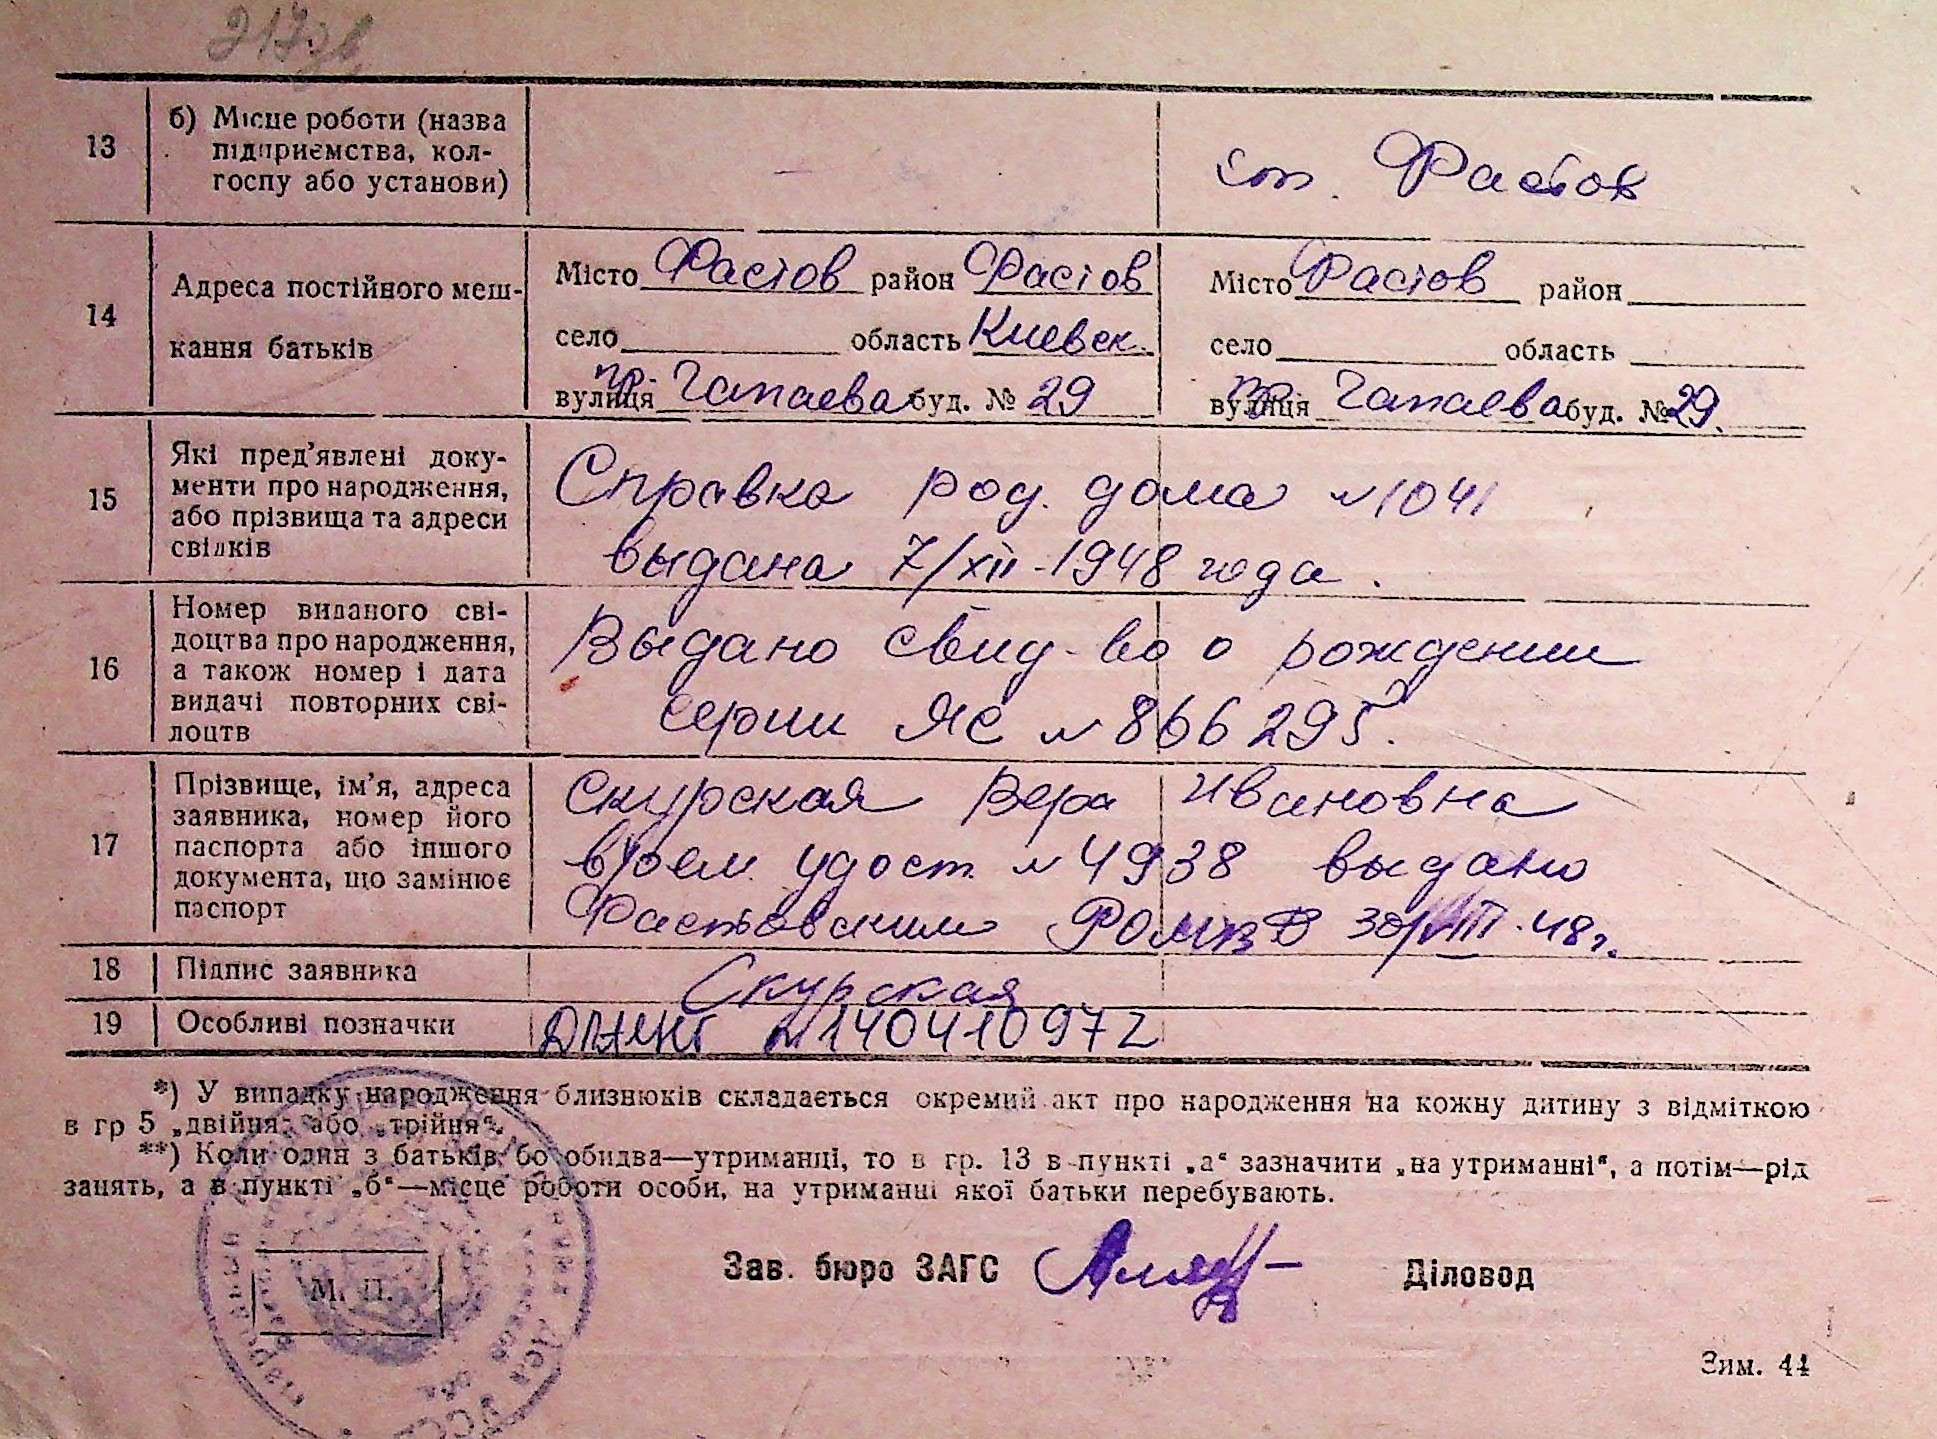 217зв
13 б) Місце роботи (назва підприємства, кол-госпу або установи) — ст. Фастов
14 Адреса постійного меш-кання батьків
Місто Фастов район Фастов Місто Фастов район
село область Киевск. село область
вулиця пр. Чапаева буд. № 29 вулиця пр. Чапаева буд. № 29.
15 Які пред'явлені доку-
менти про народження,
або прізвища та адреси
свідків
Справка род. дома №1041
выдана 7/XII-1948 года.
16 Номер виданого сві-
доцтва про народження,
а також номер і дата
видачі повторних сві-
доцтв
Выдано свид-во о рождении
серии ЯС №866295.
17 Прізвище, ім'я, адреса
заявника, номер його
паспорта або іншого
документа, що замінює
паспорт
Скурская Вера Ивановна
врем. удост. №4938 выдано
Фастовским 30/VIII-48г.
18 Підпис заявника Скурская
19 Особливі позначки №140410972
*) У випадку народження близнюків складається окремий акт про народження на кожну дитину з відміткою
в гр 5 „двійня“ або „трійня“.
**) Коли один з батьків, бо обидва—утриманці, то в гр. 13 в пункті „а“ зазначити „на утриманні“, а потім—рід
занять, а в пункті „б“—місце роботи особи, на утриманні якої батьки перебувають.
М. П.
Зав. бюро ЗАГС Діловод
Зим. 44